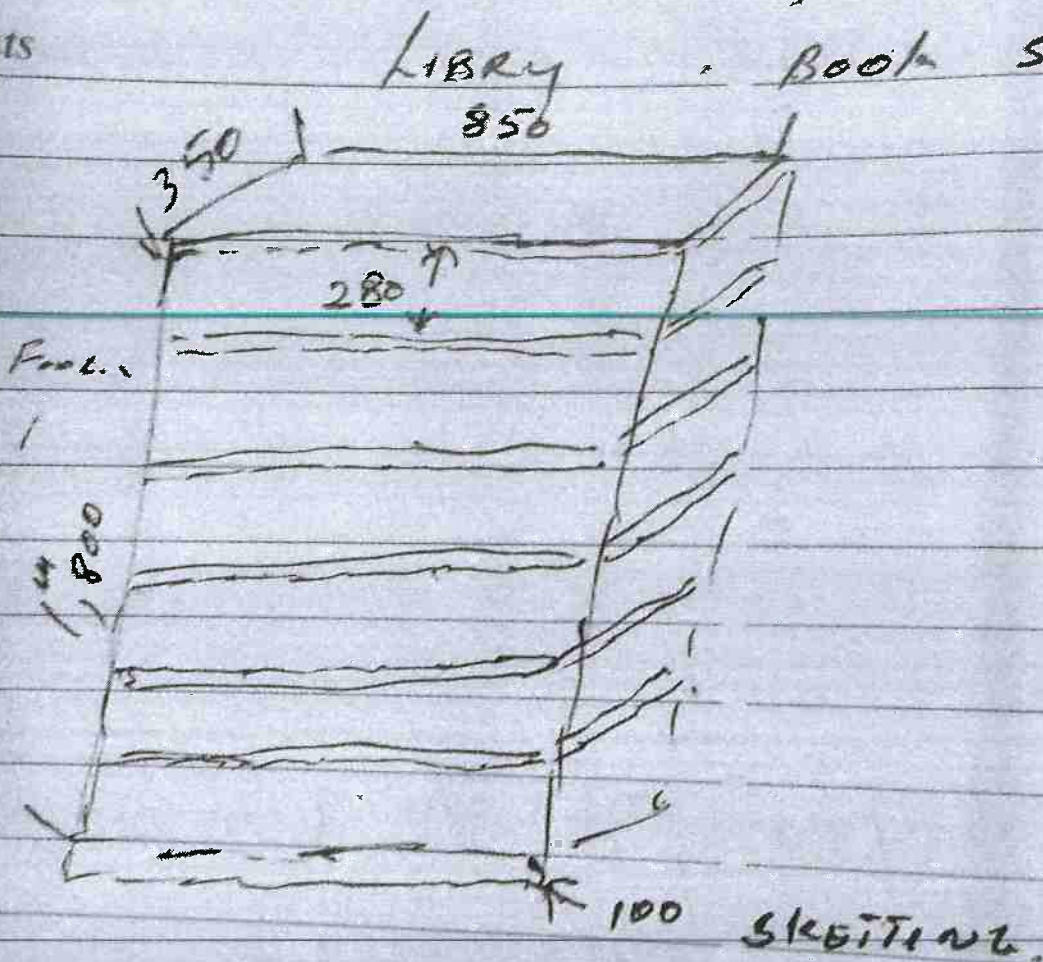 ts
LIBRY BOOK S
850
350
280
1
800
100 SKETTING.